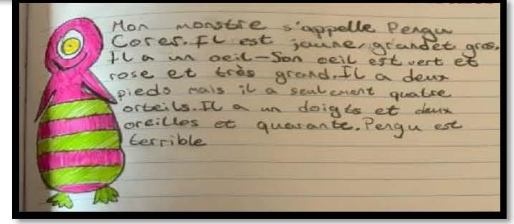 Mon monstre s'appelle Pengu
Cores. Il est jaune, grand et gros.
Il a un oeil - Son oeil est vert et
rose et très grand. Il a deux
pieds mais il a seulement quatre
orteils. Il a un doigts et deux
oreilles et quarante. Pengu est
terrible